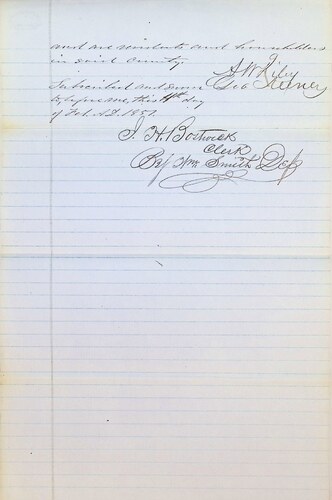 and are residents and householders
in said county.
A W Riley
Subscribed and sworn
Geo Keeney
to before me, this 11th day
of Feb. A.D. 185
J. H. Bostwick
Clerk
By Wm Smith Dep